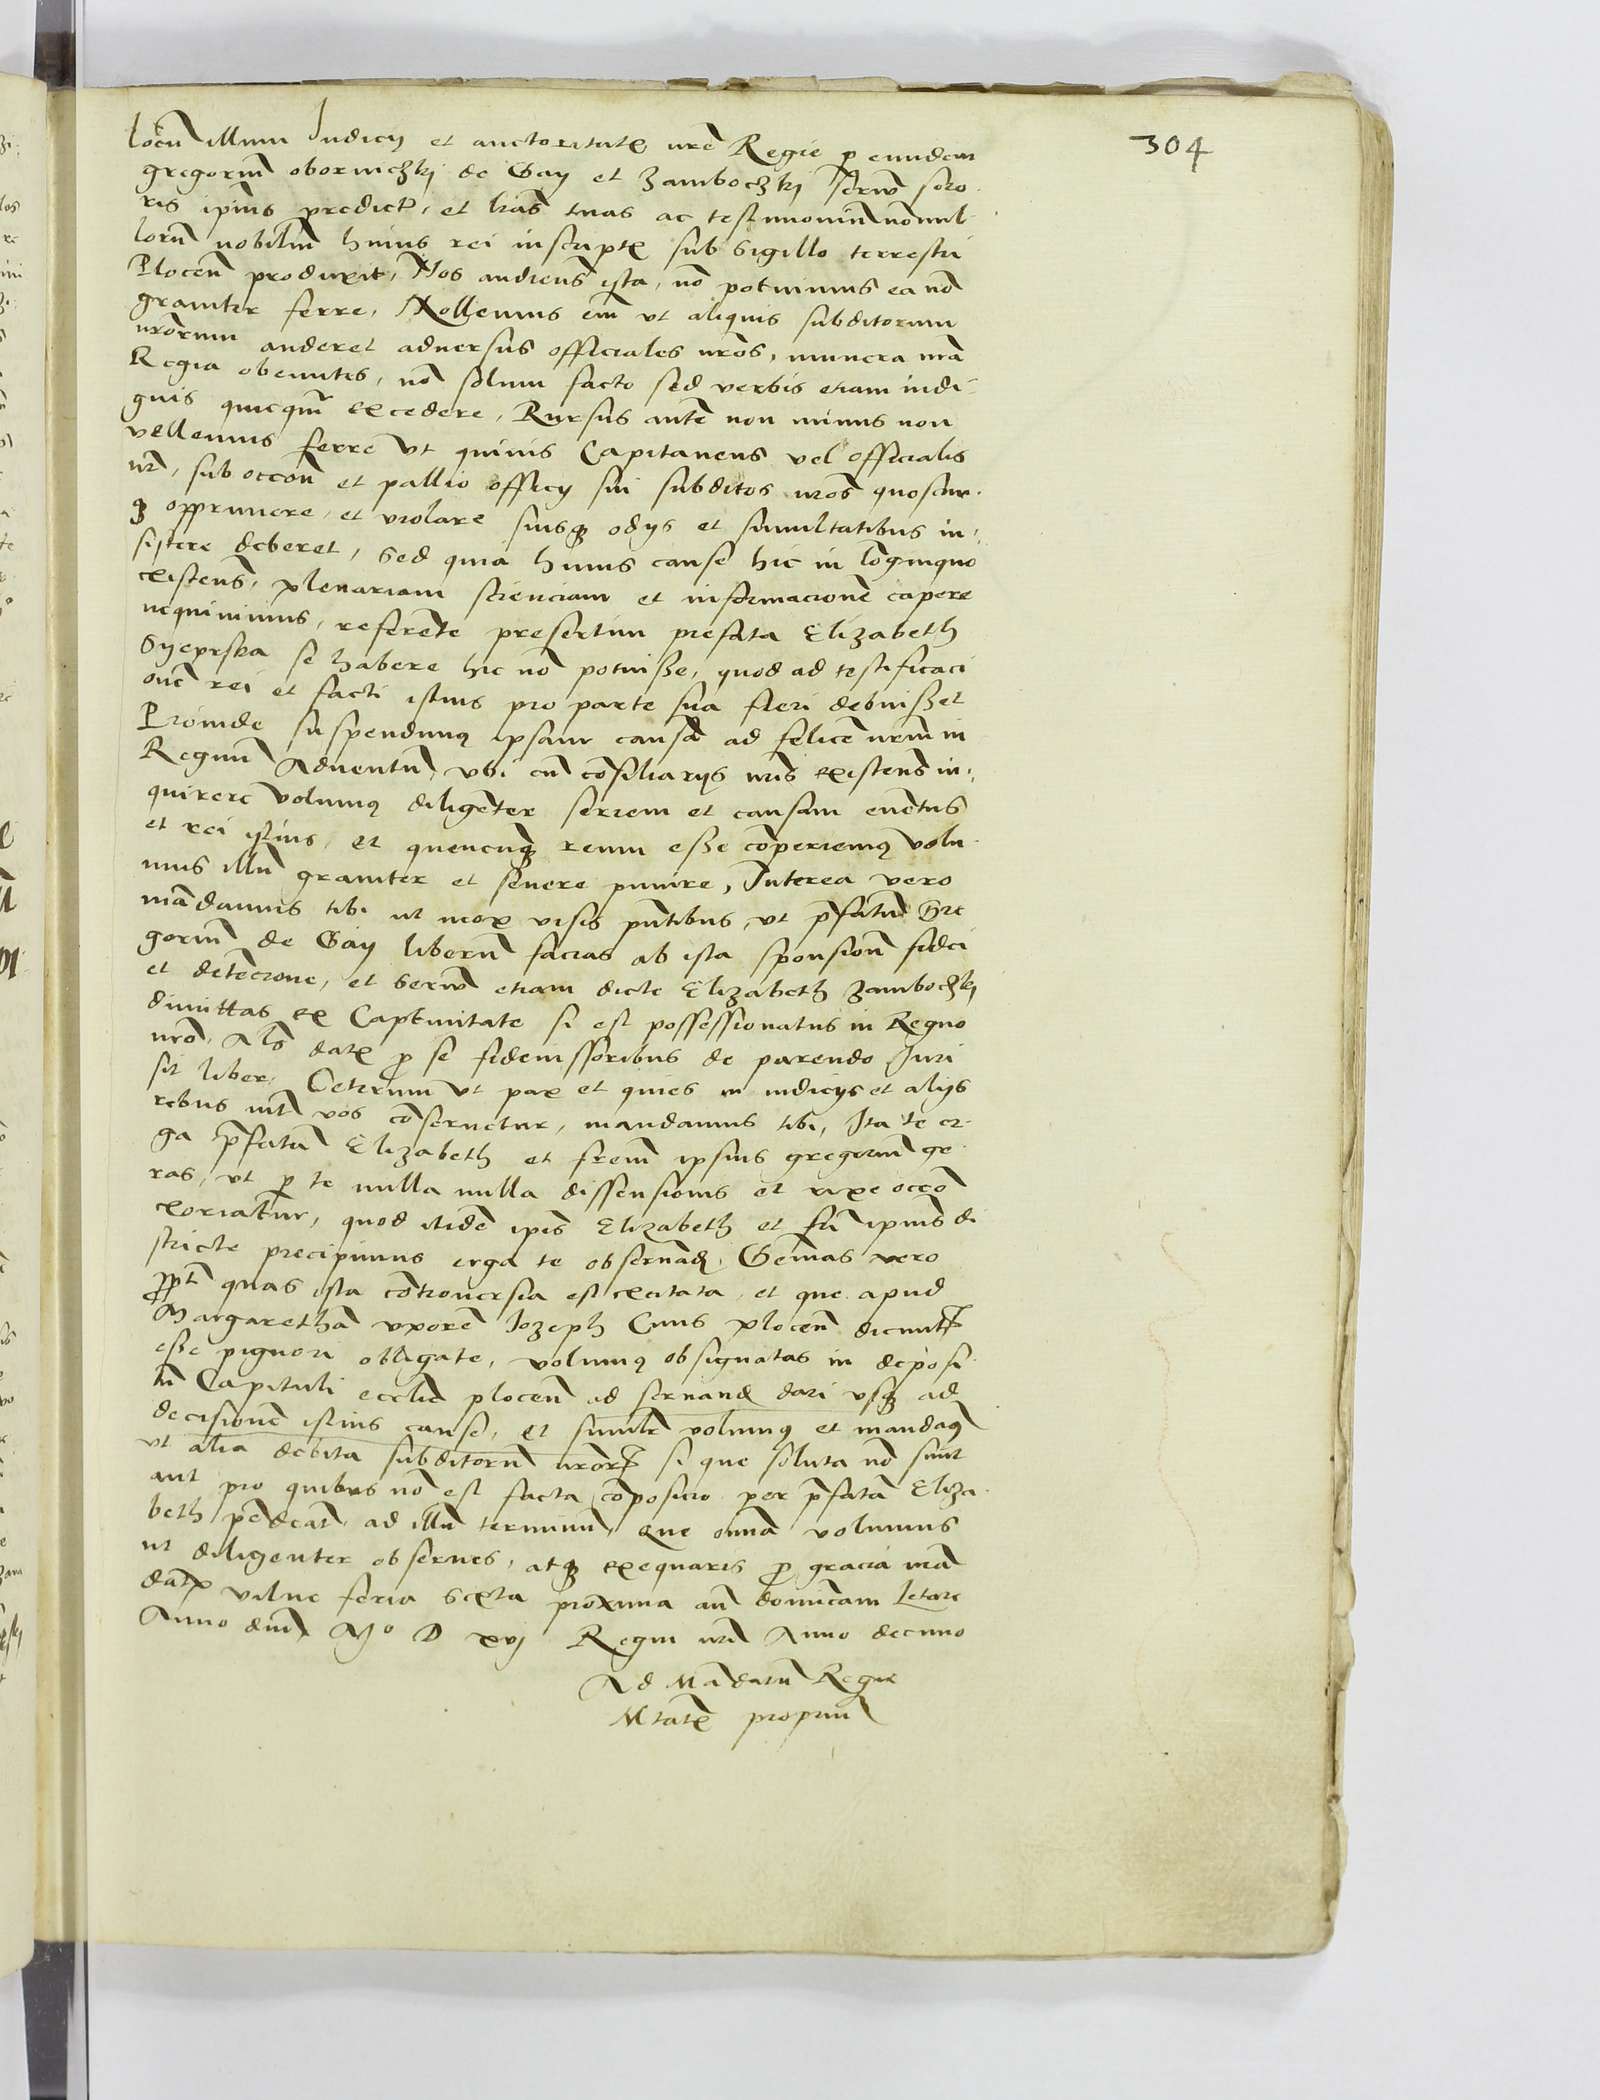 304
locũ illum Judicij et auctoritatẽ nrẽ Regie p eundem
gregoriũ obornichzkj de Gay et Zambochzkj servũ soro-
ris ipius predictẽ, et lras tuas ac testimoniũ nonnul-
lorũ nobiliũ huius rei inscriptẽ sub sigillo terrestri
Plocen̄ produxit, Nos audiens̄ ista, nõ potuimus ea nõ
graviter ferre, Nollemus em̄ vt aliquis subditorum
nrõrum auderet adversus officiales nrõs, munera nrã
Regia obeuntes, nõ solum facto sed verbis etiam indi-
gnis quicquã excedere, Rursus autẽ non minus non
vellemus ferre vt quivis Capitaneus vel officialis
nr̄, sub occõn̄ et pallio officij sui subditos nrõs quoscun-
qȝ opprimere, et violare suisqȝ odijs et simultatibus in-
sistere deberet, Sed quia huius cause hic in lõginquo
existens̄, plenariam scienciam et informacionẽ capere
nequivimus, referẽte presertim prefata Elizabeth
Syeprska se habere hic nõ potuisse, quod ad testificaci
onẽ rei et facti istius pro parte sua fieri debuisset
Proinde suspendimꝰ ipsam causã ad felicẽ nrm̄ in
Regnũ Adventũ, vbi cũ cõsiliarijs nrĩs existens̄ in-
quirere volumꝰ diligẽter seriem et causam evẽtus
et rei istius, et quencũqȝ reum esse cõperiemꝰ volu-
mus illũ graviter et severe punire, Interea vero
mãdamus tibi ut mox visis pñtibus, vt pfatũ Gre
goriũ de Gay liberũ facias ab ista sponsion̄ fidei
et detẽcione, et servũ etiam dicte Elizabeth Zambochzkj
dimittas ex Captivitate si est possessionatus in Regno
nrõ, Als̄ datẽ p se fideiussoribus de parendo Juri
sit liber, Ceterum vt pax et quies in iudicijs et alijs
rebus int̄ vos cõservetur, mandamus tibi, Ita te er-
ga pfatã Elizabeth et frem̄ ipsius gregoriũ ge-
ras, vt p te nulla nulla dissensionis et rixe occõ
exoriatur, quod itidẽ ipĩs Elizabeth et frĩ ipius di
stricte precipimus erga te observãd, Gem̄as vero
ppt̄ quas ista cõtroversia est excitata, et que apud
Margarethã vxorẽ Jozeph Civis plocen̄ dicuntꝛ
esse pignori obligate, volumꝰ obsignatas in deposi-
tũ Capituli ecclie plocen̄ ad servand dari vsqȝ ad
decisionẽ istius cause, et simil̄r volumꝰ et mandamꝰ
vt alia debita subditorũ nrõrꝛ si que soluta nõ sunt
aut pro quibus nõ est facta cõposicio per pfatã Eliza-
beth pẽdeãt, ad illũ terminũ, Que omnia volumus
ut diligenter observes, atqȝ exequaris p gracia nrã
datẽ vilne feria sexta proxima añ dominicam Letare
Anno dnĩ Mo D xvj Regni nrĩ Anno decimo
Ad Mãdatũ Regie
Mtatẽ propriũ